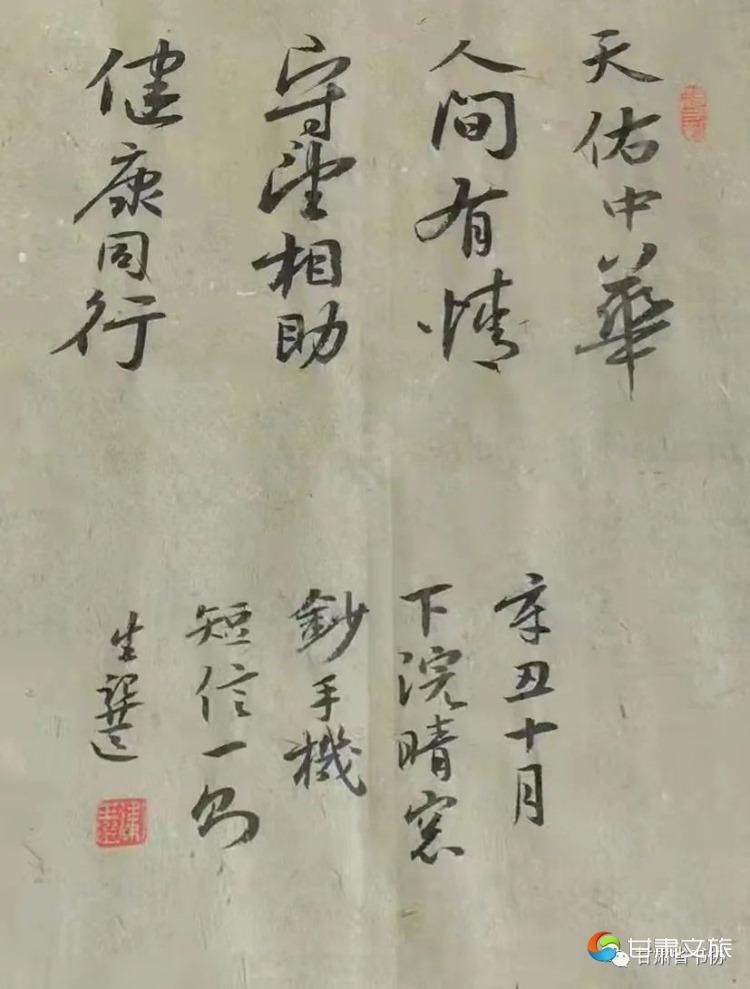 天佑中華
人間有情
守望相助
健康同行
辛丑十月
下浣晴窓
鈔手機
短信一則
生選
甘肃文旅
甘肃省书协